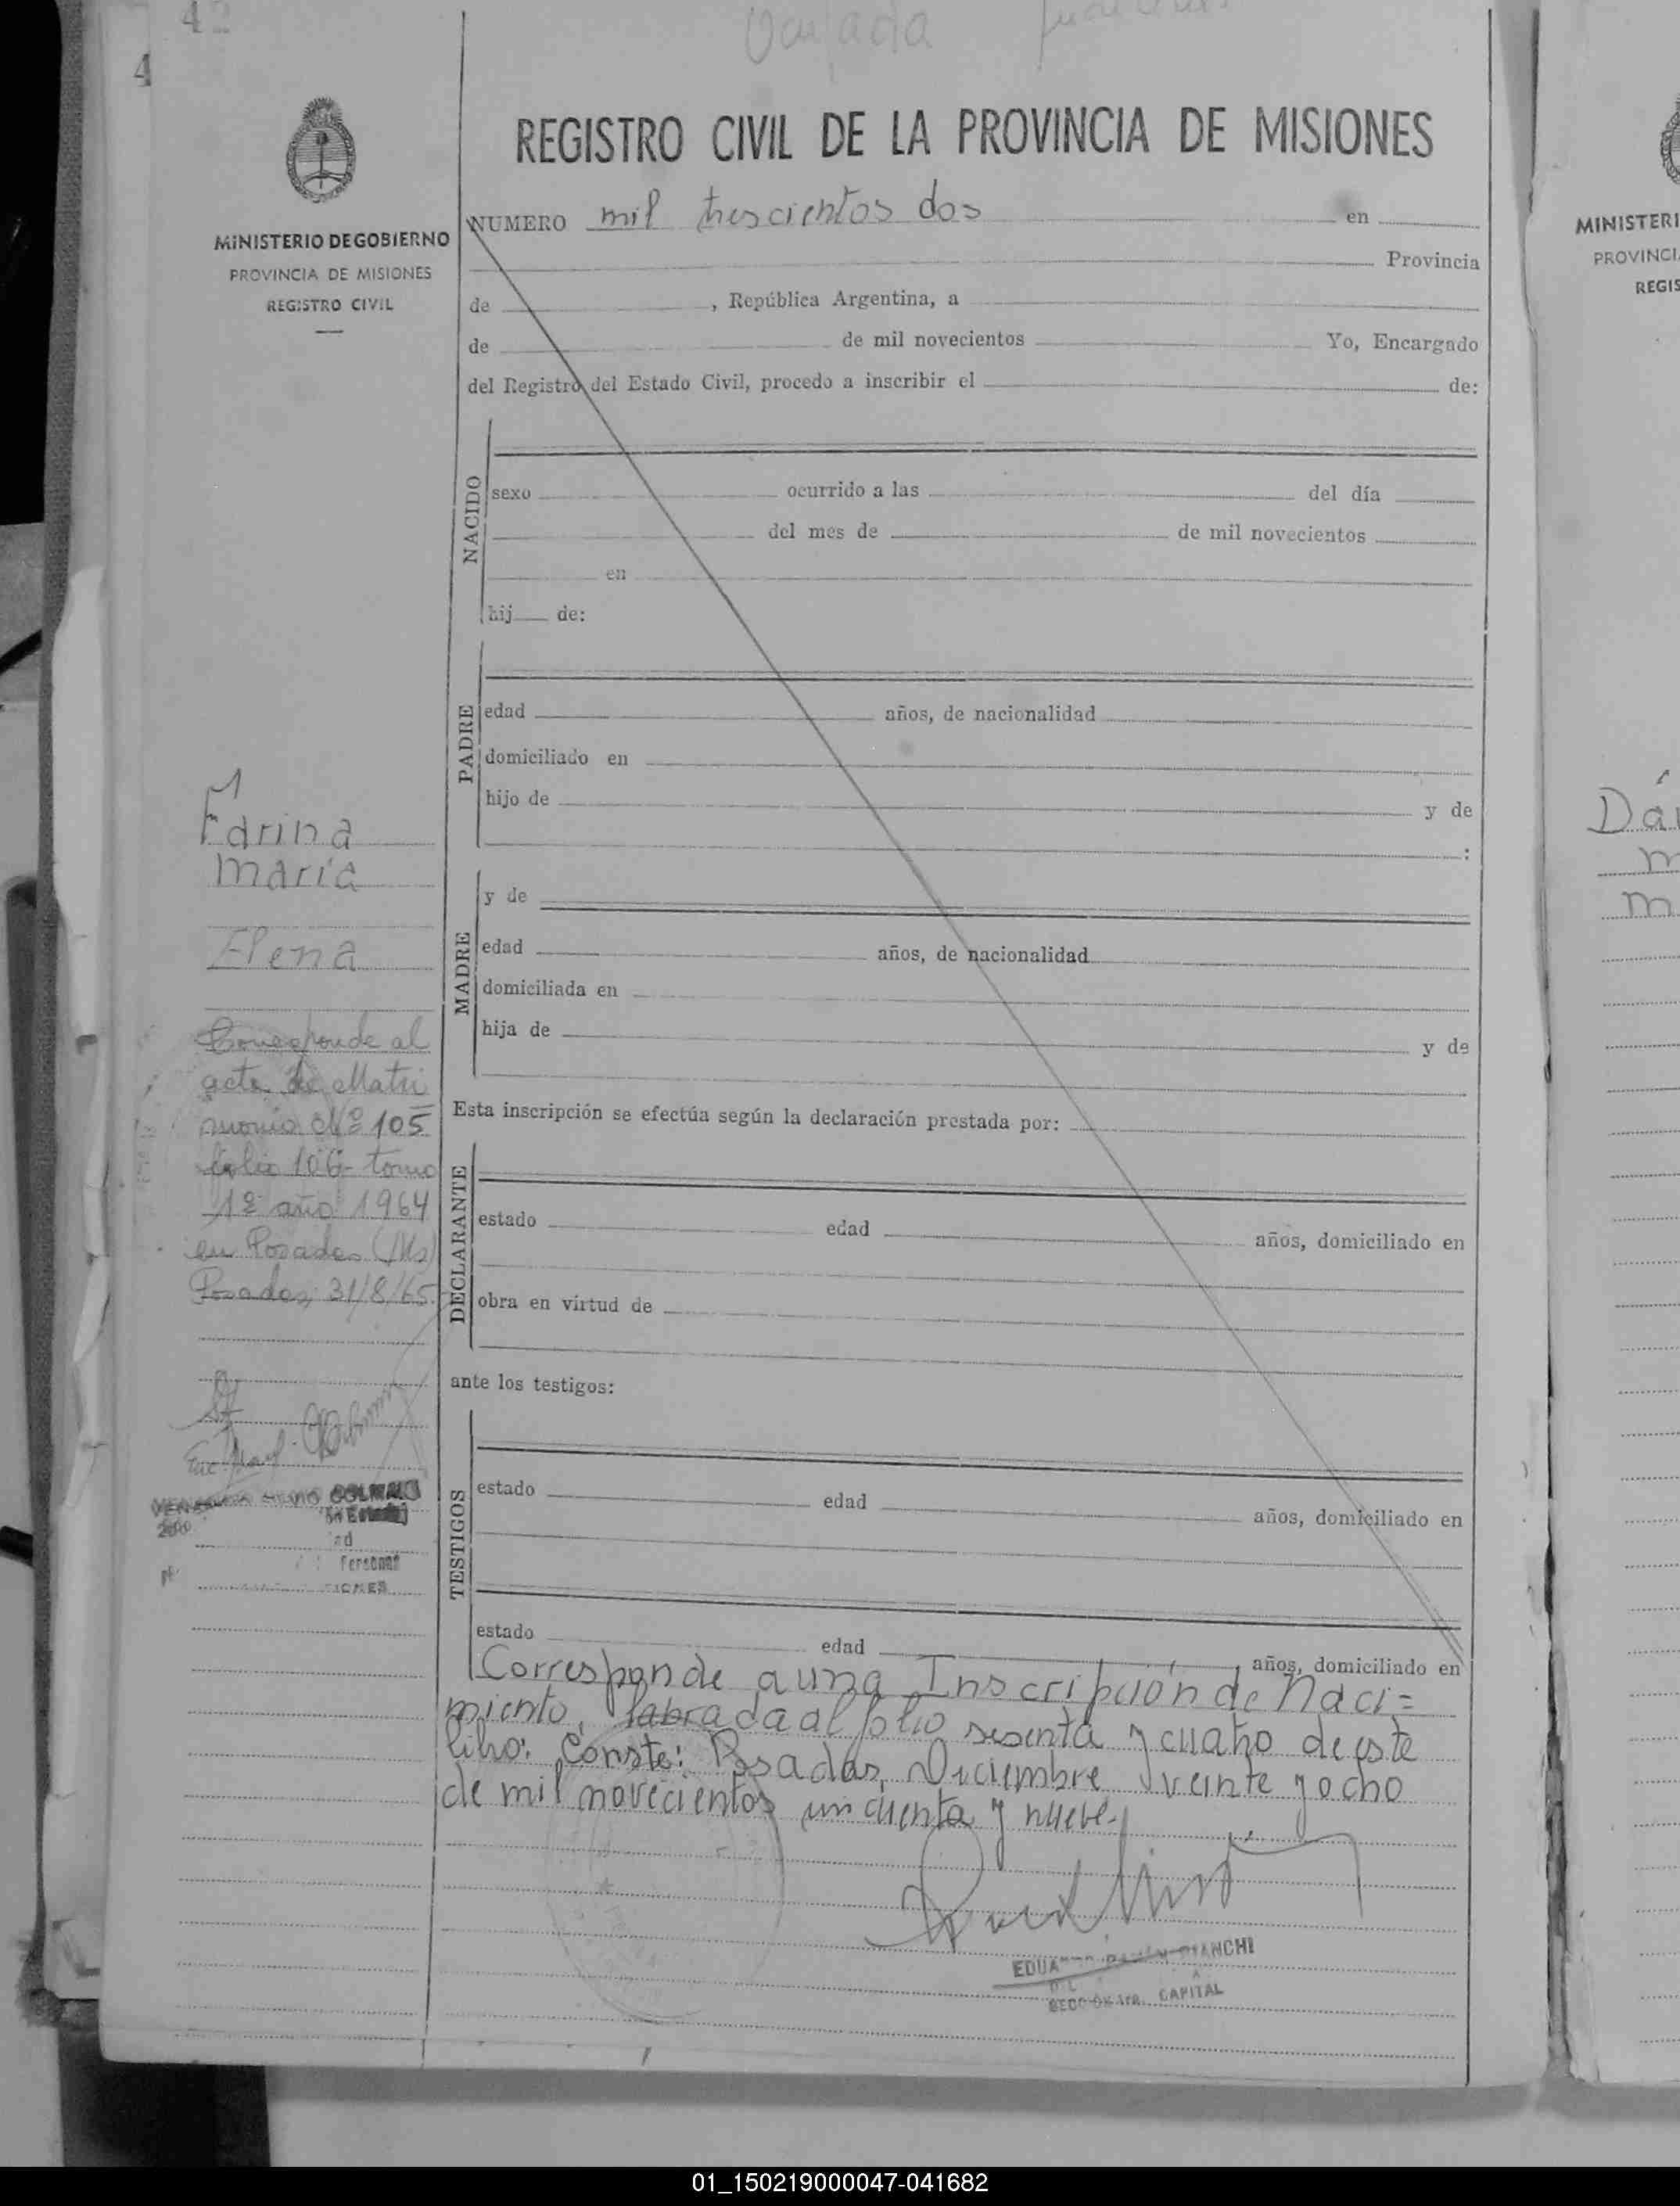 4
REGISTRO CIVIL DE LA PROVINCIA DE MISIONES
MINISTERIO DE GOBIERNO
PROVINCIA DE MISIONES
REGISTRO CIVIL
NUMERO mil trescientos dos en
Provincia
de , República Argentina, a
de de mil novecientos Yo, Encargado
del Registro del Estado Civil, procedo a inscribir el de:
NACIDO
sexo ocurrido a las del día
del mes de de mil novecientos
en
hij de:
PADRE
edad años, de nacionalidad
domiciliado en
hijo de y de
:
MADRE
y de
edad años, de nacionalidad
domiciliada en
hija de y de
Esta inscripción se efectúa según la declaración prestada por:
DECLARANTE
estado edad años, domiciliado en
obra en virtud de
ante los testigos:
TESTIGOS
estado edad años, domiciliado en
estado edad años, domiciliado en
Corresponde a una Inscripción de Naci=
miento, labrada al folio sesenta y cuatro de este
libro: Conste: Posadas, Diciembre veinte y ocho
de mil novecientos cincuenta y nueve.
BIANCHI
CAPITAL
Farina
María
Elena
Corresponde al
acta de Matri
monio Nº 105
folio 106 tomo
1º año 1964
en Posadas (Ms)
Posadas, 31/8/65.
MINISTERI
PROVINCI
REGIS
Dá
m
m
01_150219000047-041682